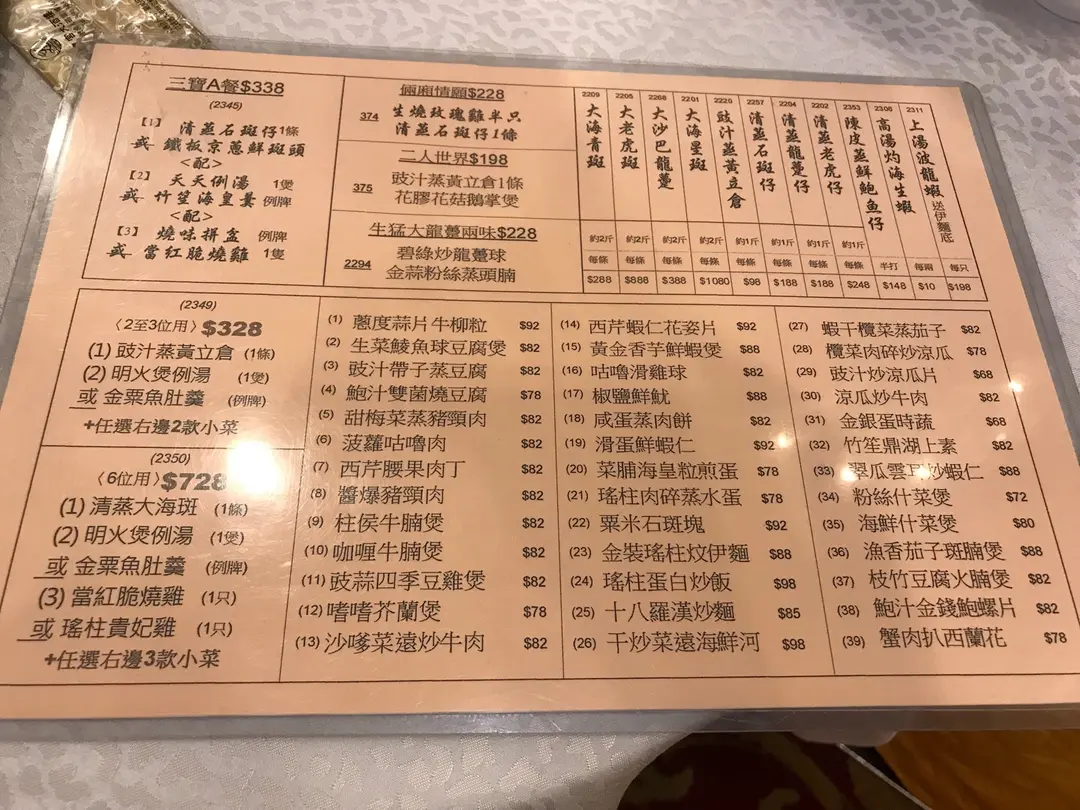 三寶A餐$338
(2345)
【1】 清蒸石斑仔1條
或 鐵板京蔥鮮斑頭
<配>
【2】 天天例湯 1煲
或 竹笙海皇羹 例牌
<配>
【3】 燒味拼盆 例牌
或 當紅脆燒雞 1隻
倆廂情願$228
374 生燒玫瑰雞半只
清蒸石斑仔1條
二人世界$198
375 豉汁蒸黃立倉1條
花膠花菇鵝掌煲
生猛大龍躉兩味$228
2294 碧綠炒龍躉球
金蒜粉絲蒸頭腩
2209 大海青斑 約2斤 每條 $288
2205 大老虎斑 約2斤 每條 $888
2268 大沙巴龍躉 約2斤 每條 $388
2201 大海星斑 約2斤 每條 $1080
2220 豉汁蒸黃立倉 約1斤 每條 $98
2257 清蒸石斑仔 約1斤 每條 $188
2204 清蒸龍躉仔 約1斤 每條 $188
2202 清蒸老虎仔 約1斤 每條 $248
2353 陳皮蒸鮮鮑魚仔 半打 $148
2306 高湯灼海生蝦 每兩 $10
2311 上湯波龍蝦 送伊麵底 每只 $198
(2349)
〈2至3位用〉$328
(1) 豉汁蒸黃立倉 (1條)
(2) 明火煲例湯 (1煲)
或 金粟魚肚羹 (例牌)
+任選右邊2款小菜
(2350)
〈6位用〉$728
(1) 清蒸大海斑 (1條)
(2) 明火煲例湯 (1煲)
或 金粟魚肚羹 (例牌)
(3) 當紅脆燒雞 (1只)
或 瑤柱貴妃雞 (1只)
+任選右邊3款小菜
(1) 蔥度蒜片牛柳粒 $92
(2) 生菜鯪魚球豆腐煲 $82
(3) 豉汁帶子蒸豆腐 $82
(4) 鮑汁雙菌燒豆腐 $78
(5) 甜梅菜蒸豬頸肉 $82
(6) 菠蘿咕嚕肉 $82
(7) 西芹腰果肉丁 $82
(8) 醬爆豬頸肉 $82
(9) 柱侯牛腩煲 $82
(10) 咖喱牛腩煲 $82
(11) 豉蒜四季豆雞煲 $82
(12) 嗜嗜芥蘭煲 $78
(13) 沙嗲菜遠炒牛肉 $82
(14) 西芹蝦仁花姿片 $92
(15) 黃金香芋鮮蝦煲 $88
(16) 咕嚕滑雞球 $82
(17) 椒鹽鮮魷 $88
(18) 咸蛋蒸肉餅 $82
(19) 滑蛋鮮蝦仁 $92
(20) 菜脯海皇粒煎蛋 $78
(21) 瑤柱肉碎蒸水蛋 $78
(22) 粟米石斑塊 $92
(23) 金裝瑤柱炆伊麵 $88
(24) 瑤柱蛋白炒飯 $98
(25) 十八羅漢炒麵 $85
(26) 干炒菜遠海鮮河 $98
(27) 蝦干欖菜蒸茄子 $82
(28) 欖菜肉碎炒涼瓜 $78
(29) 豉汁炒涼瓜片 $68
(30) 涼瓜炒牛肉 $82
(31) 金銀蛋時蔬 $68
(32) 竹笙鼎湖上素 $82
(33) 翠瓜雲耳炒蝦仁 $88
(34) 粉絲什菜煲 $72
(35) 海鮮什菜煲 $80
(36) 漁香茄子斑腩煲 $88
(37) 枝竹豆腐火腩煲 $82
(38) 鮑汁金錢鮑螺片 $82
(39) 蟹肉扒西蘭花 $78